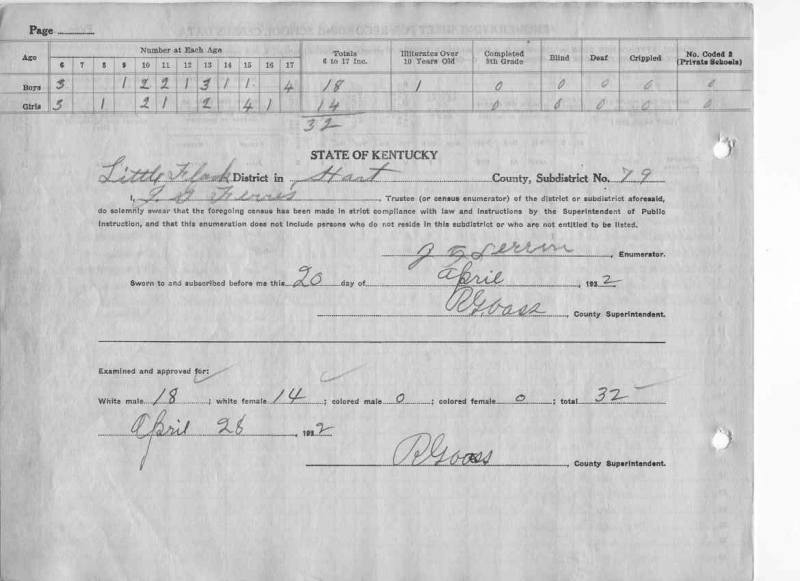 Page
Age Number at Each Age Totals 6 to 17 Inc. Illiterates Over 10 Years Old Completed 8th Grade Blind Deaf Crippled No. Coded 2 (Private Schools)
6 7 8 9 10 11 12 13 14 15 16 17
Boys 3 1 2 2 1 3 1 1 4 18 1 0 0 0 0 0
Girls 3 1 2 1 2 4 1 14 0 0 0 0 0
32
STATE OF KENTUCKY
Little District in Hart County, Subdistrict No. 79
I, , Trustee (or census enumerator) of the district or subdistrict aforesaid,
do solemnly swear that the foregoing census has been made in strict compliance with law and instructions by the Superintendent of Public
Instruction, and that this enumeration does not include persons who do not reside in this subdistrict or who are not entitled to be listed.
, Enumerator.
Sworn to and subscribed before me this 20 day of April , 1932
, County Superintendent.
Examined and approved for:
White male 18 ; white female 14 ; colored male 0 ; colored female 0 ; total 32
April 28 , 1932
, County Superintendent.